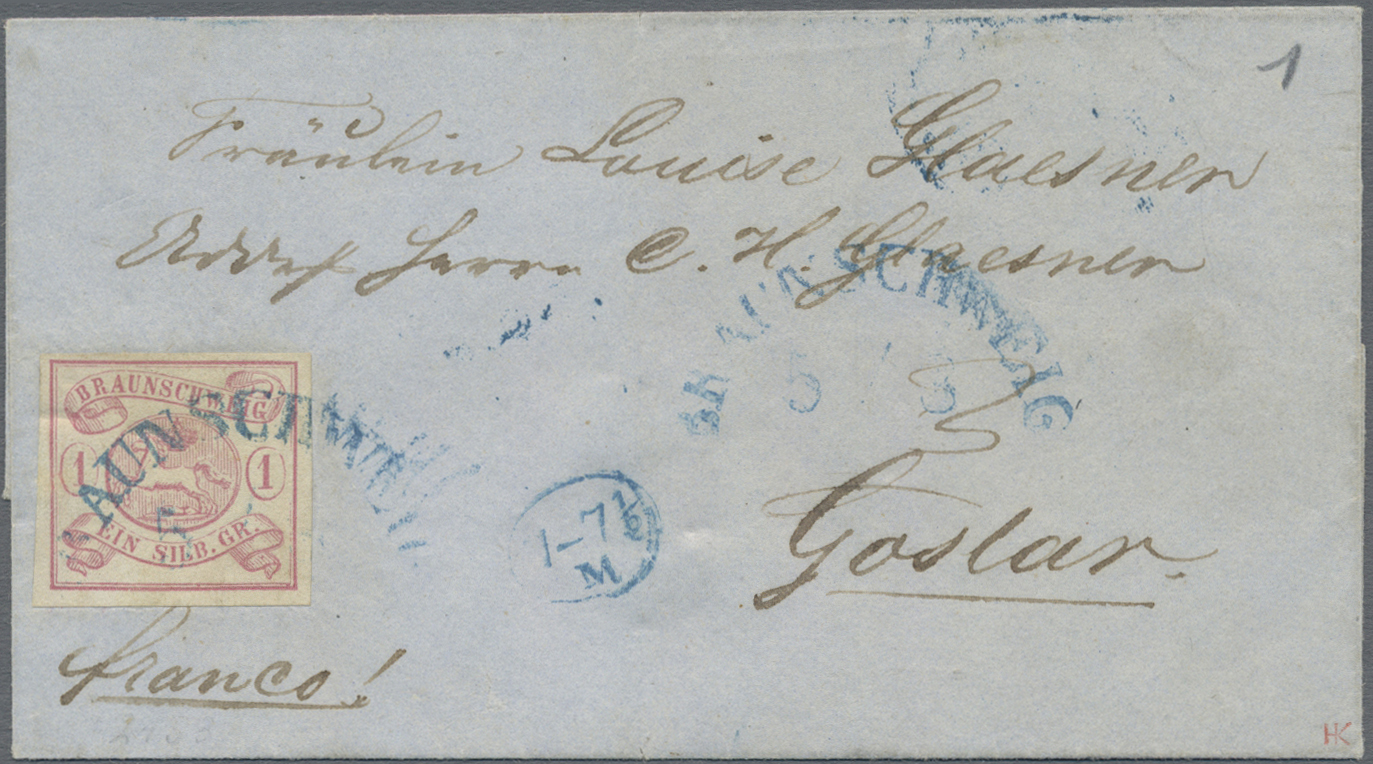 1
Fräulein Louise Glaesner
Addresse Herrn C. H. Glaesner
BRAUNSCHWEIG
5 3
BRAUNSCHWEIG
1 1
EIN SILB. GR.
AUNSCHWEI
7
1-7½
M
Goslar.
franco!
HK